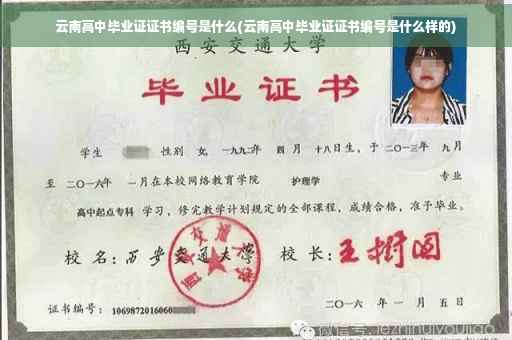 云南高中毕业证证书编号是什么(云南高中毕业证证书编号是什么样的)
西安交通大学
毕业证书
学生 性别 女, 一九九二年 四月 十八日生, 于二〇一三年 九月
至 二〇一六年 一月在本校网络教育学院 护理学 专业
高中起点专科 学习, 修完教学计划规定的全部课程, 成绩合格, 准予毕业。
校名: 西安交通大学 校长: 王树国
西安交通大学
证书编号: 1069872016060
二〇一六年 一月 五日
微信号: jiezhinuyoujiao